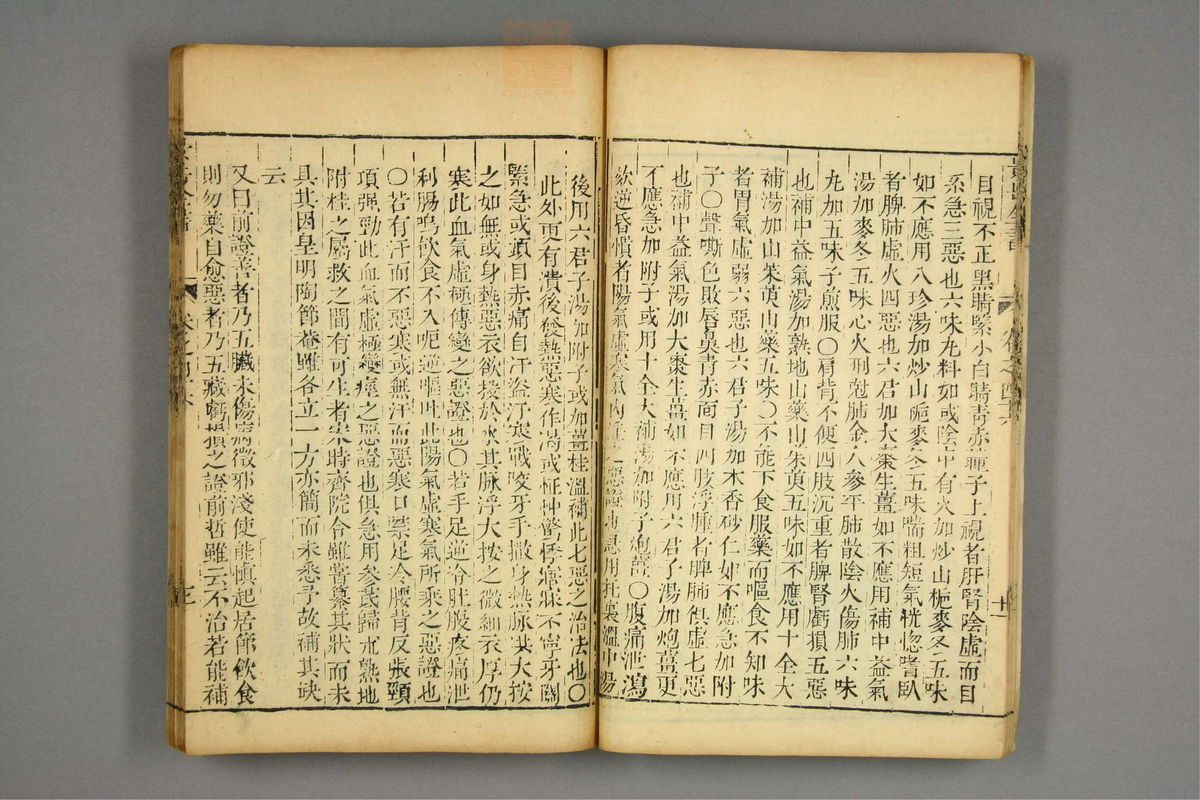 景岳全書
目視不正黑睛緊小白睛青赤瞳子上視者肝腎陰虛而目
系急三惡也六味丸料如或陰中有火加炒山梔麥冬五味
如不應用八珍湯加炒山梔麥冬五味喘粗短氣恍惚嗜臥
者脾肺虛火四惡也六君加大棗生薑如不應用補中益氣
湯加麥冬五味心火刑尅肺金人參平肺散陰火傷肺六味
丸加五味子煎服〇肩背不便四肢沉重者脾腎虧損五惡
也補中益氣湯加熟地山藥山茱萸五味如不應用十全大
補湯加山茱萸山藥五味〇不能下食服藥而嘔食不知味
者胃氣虛弱六惡也六君子湯加木香砂仁如不應急加附
子〇聲嘶色敗唇鼻青赤面目四肢浮腫者脾肺俱虛七惡
也補中益氣湯加大棗生薑如不應用六君子湯加炮薑更
不應急加附子或用十全大補湯加附子炮薑〇腹痛泄瀉
欬逆昏憒者陽氣虛寒氣內之惡證也急用托裏溫中湯
後用六君子湯加附子或加薑桂溫補此七惡之治法也〇
此外更有潰後發熱惡寒作渴或怔忡驚悸寤寐不寧牙關
緊急或頭目赤痛自汗盜汗寒戰咬牙手撒身熱脉洪大按
之如無或身熱惡衣欲投於水其脉浮大按之微細衣厚仍
寒此血氣虛極傳變之惡證也〇若手足逆冷肚腹疼痛泄
利腸鳴飲食不入呃逆嘔吐此陽氣虛寒氣所乘之惡證也
〇若有汗而不惡寒或無汗而惡寒口噤足冷腰背反張頸
項强勁此血氣虛極變痙之惡證也俱急用參芪歸朮熟地
附桂之屬救之間有可生者宋時齊院令雖嘗纂其狀而未
具其因皇明陶節菴雖各立一方亦簡而未悉予故補其缺
云
又曰前證善者乃五臟未傷病微邪淺使能慎起居節飲食
則勿藥自愈惡者乃五臟虧損之證前哲雖云不治若能補